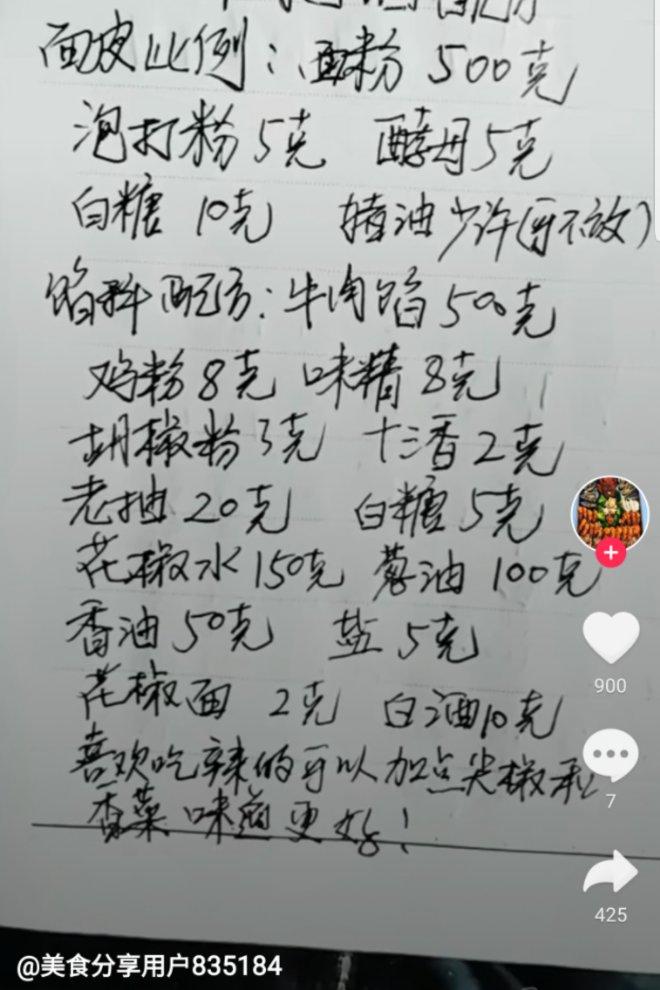 面皮比例：面粉 500克
泡打粉 5克 酵母 5克
白糖 10克 猪油少许(可不放)
馅料配方：牛肉馅 500克
鸡粉 8克 味精 8克
胡椒粉 3克 十三香 2克
老抽 20克 白糖 5克
花椒水 150克 葱油 100克
香油 50克 盐 5克
花椒面 2克 白酒10克
喜欢吃辣的可以加点尖椒和
香菜 味道更好！
900
7
425
@美食分享用户835184